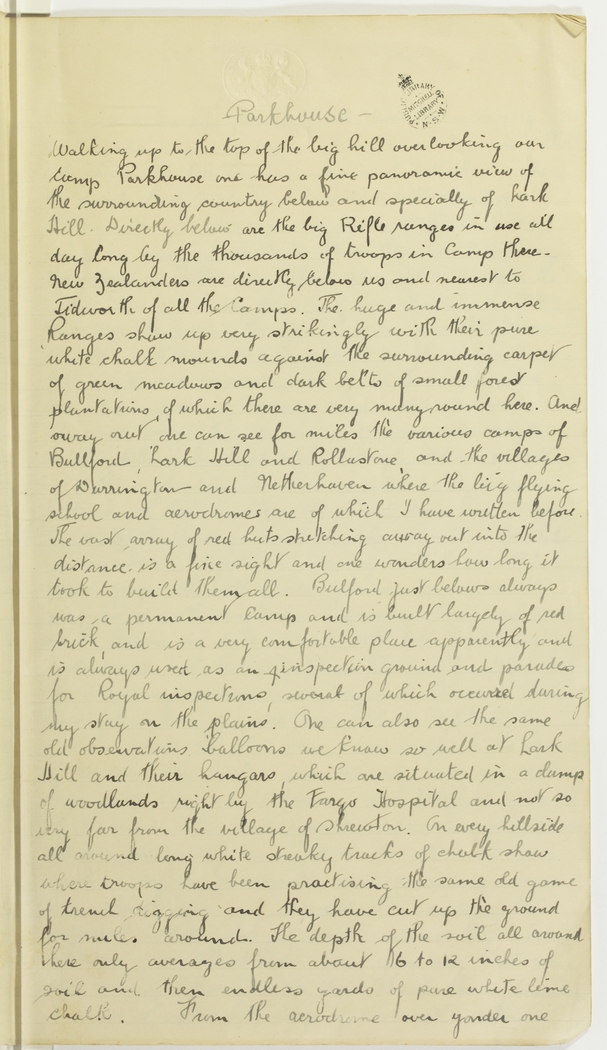 Parkhouse -
PUBLIC LIBRARY
MITCHELL
LIBRARY
N.S.W.
Walking up to the top of the big hill overlooking our
Camp Parkhouse one has a fine panoramic view of
the surrounding country below and specially of Lark
Hill. Directly below are the big Rifle ranges in use all
day long by the thousands of troops in Camp there.
New Zealanders are directly below us and nearest to
Tidworth of all the Camps. The huge and immense
Ranges show up very strikingly with their pure
white chalk mounds against the surrounding carpet
of green meadows and dark belts of small forest
plantations, of which there are very many round here. And
away out one can see for miles the various camps of
Bulford, Lark Hill and Rollustone, and the villages
of Durrington and Netherhaven where the big flying
school and aerodromes are of which I have written before.
The vast array of red huts stretching away out into the
distance is a fine sight and one wonders how long it
took to build them all. Bulford just belows always
was a permanent Camp and is built largely of red
brick, and is a very comfortable place apparently and
is always used as an inspection ground and parades
for Royal inspections, several of which occured during
my stay on the plains. One can also see the same
old observations balloons we know so well at Lark
Hill and their hangars, which are situated in a clump
of woodlands right by the Fargo Hospital and not so
very far from the village of Shrewton. On every hillside
all around long white streaky tracks of chalk show
where troops have been practising the same old game
of trench digging and they have cut up the ground
for miles around. The depth of the soil all around
here only averages from about to 12 inches of
soil and then endless yards of pure white lime
chalk. From the aerodrome over yonder one